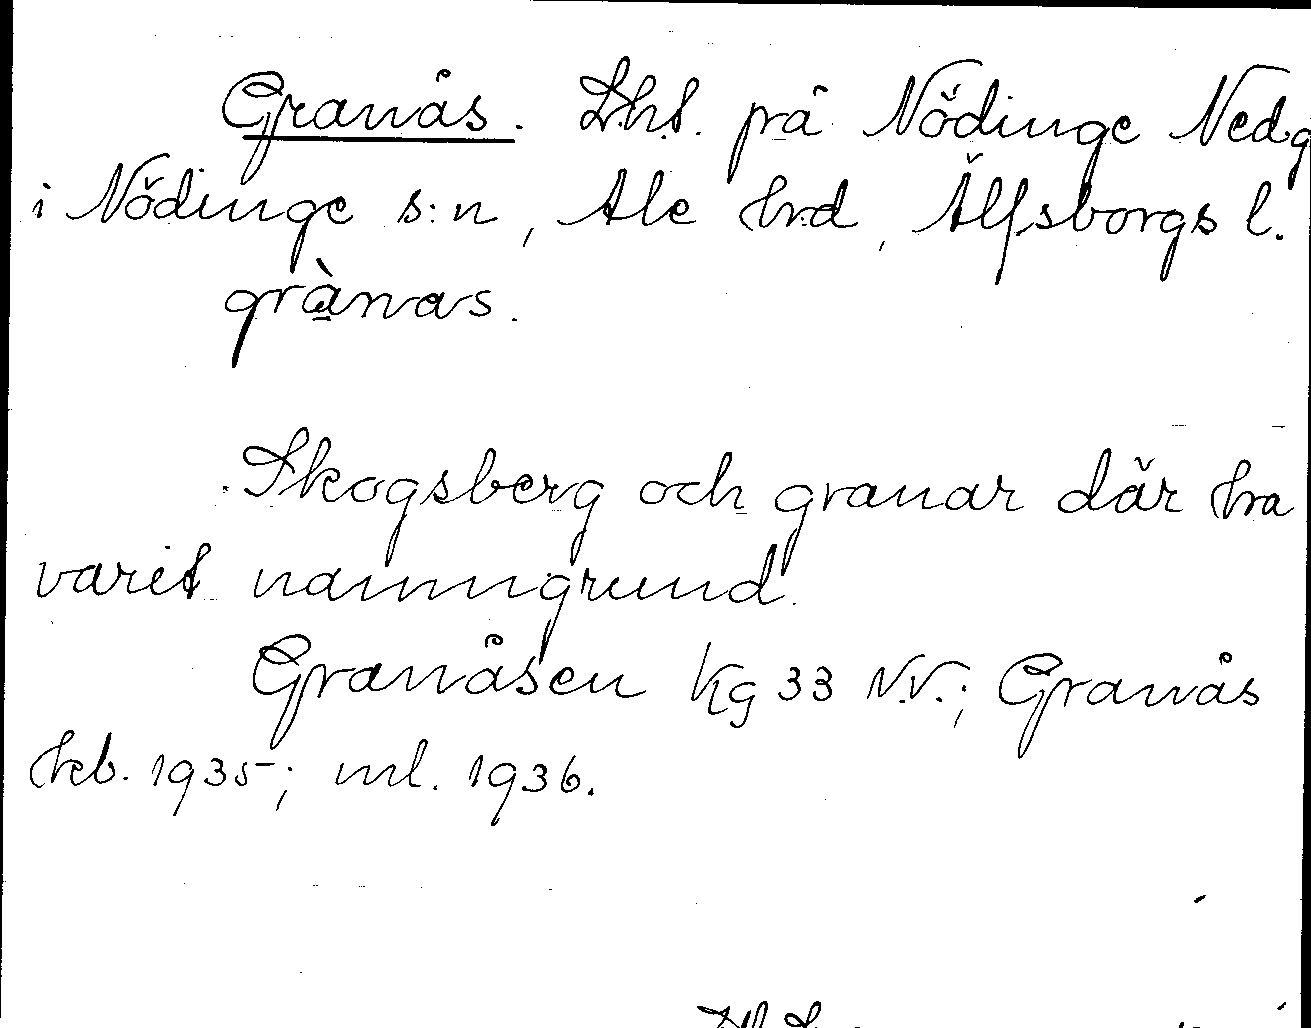 Granås. Lht. på Nödinge Nedg
i Nödinge s:n, Ale hrd, Älfsborgs l.
grànas.
Skogsberg och granar där ha
varit namngrund.
Granåsen Kg 33 N.V.; Granås
hkb. 1935; ml. 1936.